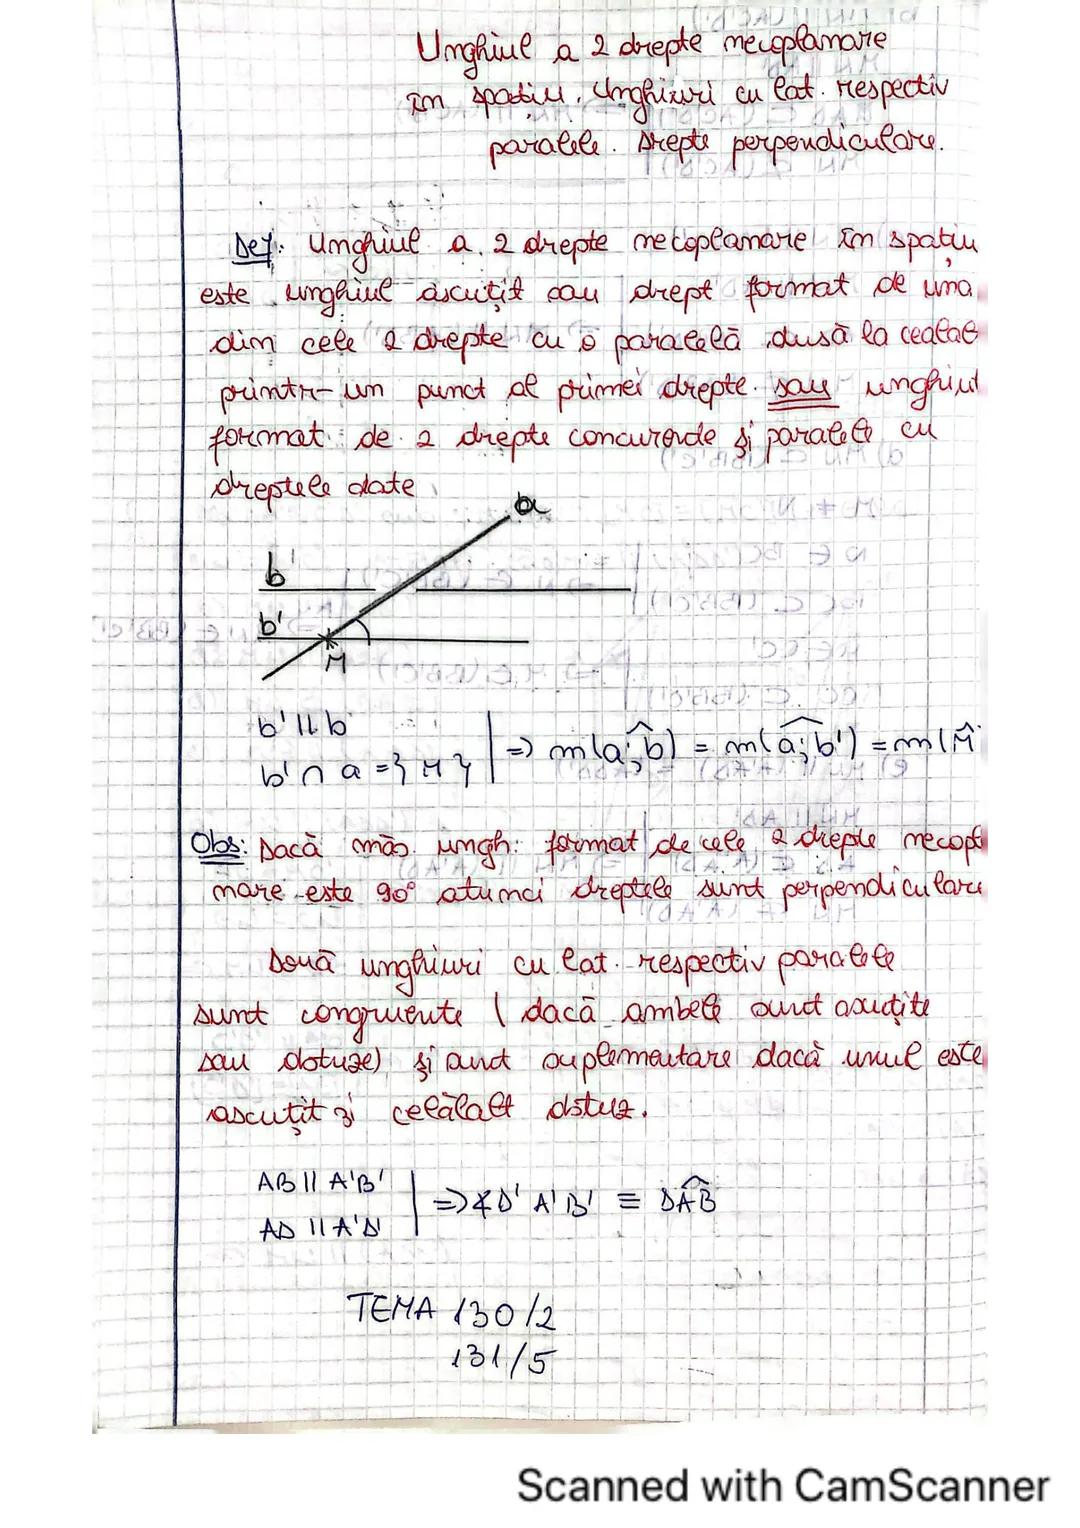 Unghiul a 2 drepte necoplanare
în spațiu. Unghiuri cu lat. respectiv
paralele. Drepte perpendiculare.
Def: Unghiul a 2 drepte necoplanare în spațiu
este unghiul ascuțit sau drept format de una
din cele 2 drepte cu o paralelă dusă la cealal
printr-un punct al primei drepte sau unghiul
format de 2 drepte concurende și paralele cu
dreptele date
a
b'
b'
M
b' || b
b' ∩ a = {M} | => m(a;b) = m(a;b') = m(M̂
Obs: Dacă măs. ungh. format de cele 2 drepte necopl
nare este 90° atunci dreptele sunt perpendiculare
Două unghiuri cu lat. respectiv paralele
sunt congruente (dacă ambele sunt ascuțite
sau obtuze) și sunt suplementare dacă unul este
ascuțit și celălalt obtuz.
AB || A'B'
AD || A'D' | => ∢D'A'B' ≡ DAB
TEMA 130/2
131/5
Scanned with CamScanner